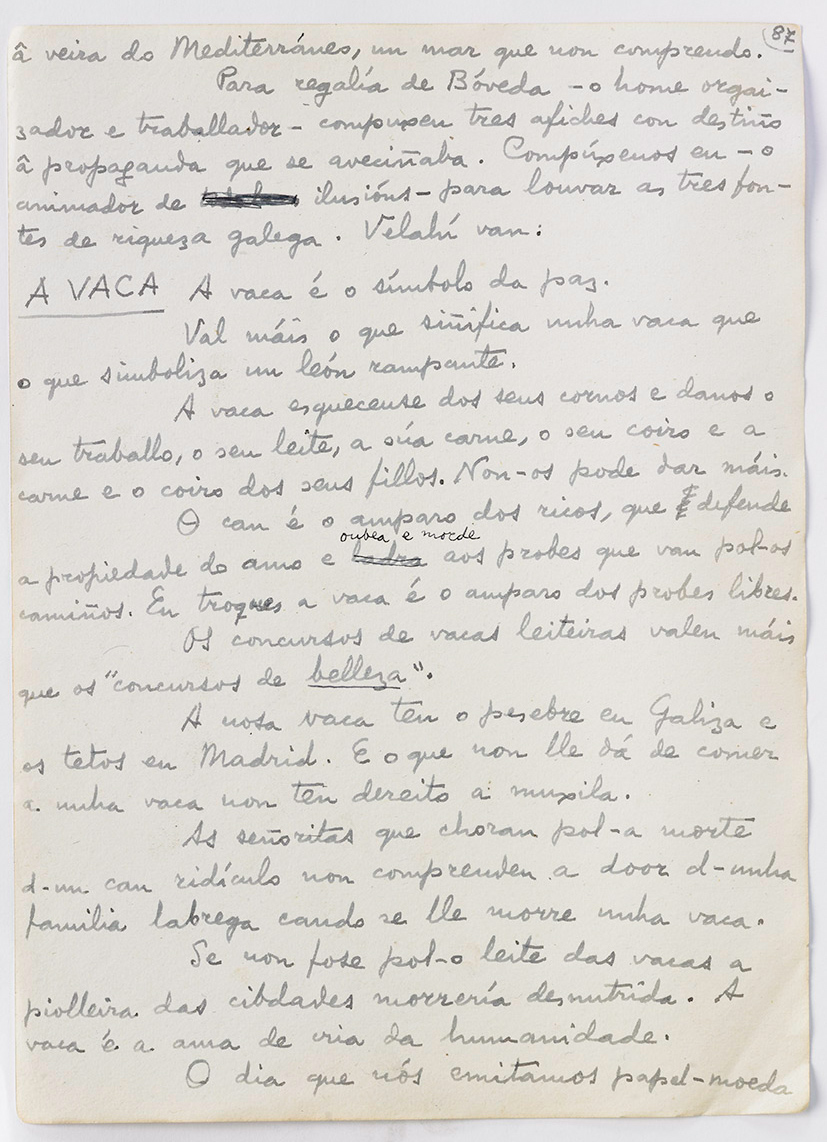 87
â veira do Mediterráneo, un mar que non comprendo.
Para regalía de Bóveda –o home orgai-
zador e traballador– compuxen tres afiches con destiño
â propaganda que se aveciñaba. Compúxenos eu –o
animador de ilusións– para louvar as tres fon-
tes de riqueza galega. Velahí van:
A VACA A vaca é o símbolo da paz.
Val máis o que siñifica unha vaca que
o que simboliza un león rampante.
A vaca esqueceuse dos seus cornos e danos o
seu traballo, o seu leite, a súa carne, o seu coiro e a
carne e o coiro dos seus fillos. Non-os pode dar máis.
O can é o amparo dos ricos, que defende
oubea e morde
a propiedade do amo e ladra aos probes que van pol-os
camiños. En troques a vaca é o amparo dos probes libres.
Os concursos de vacas leiteiras valen máis
que os "concursos de belleza".
A nosa vaca ten o pesebre en Galiza e
os tetos en Madrid. E o que non lle dá de comer
a unha vaca non ten dereito a muxila.
As señoritas que choran pol-a morte
d-un can ridículo non comprenden a door d-unha
familia labrega cando se lle morre unha vaca.
Se non fose pol-o leite das vacas a
piolleira das cibdades morrería desnutrida. A
vaca é a ama de cria da humanidade.
O dia que nós emitamos papel-moeda